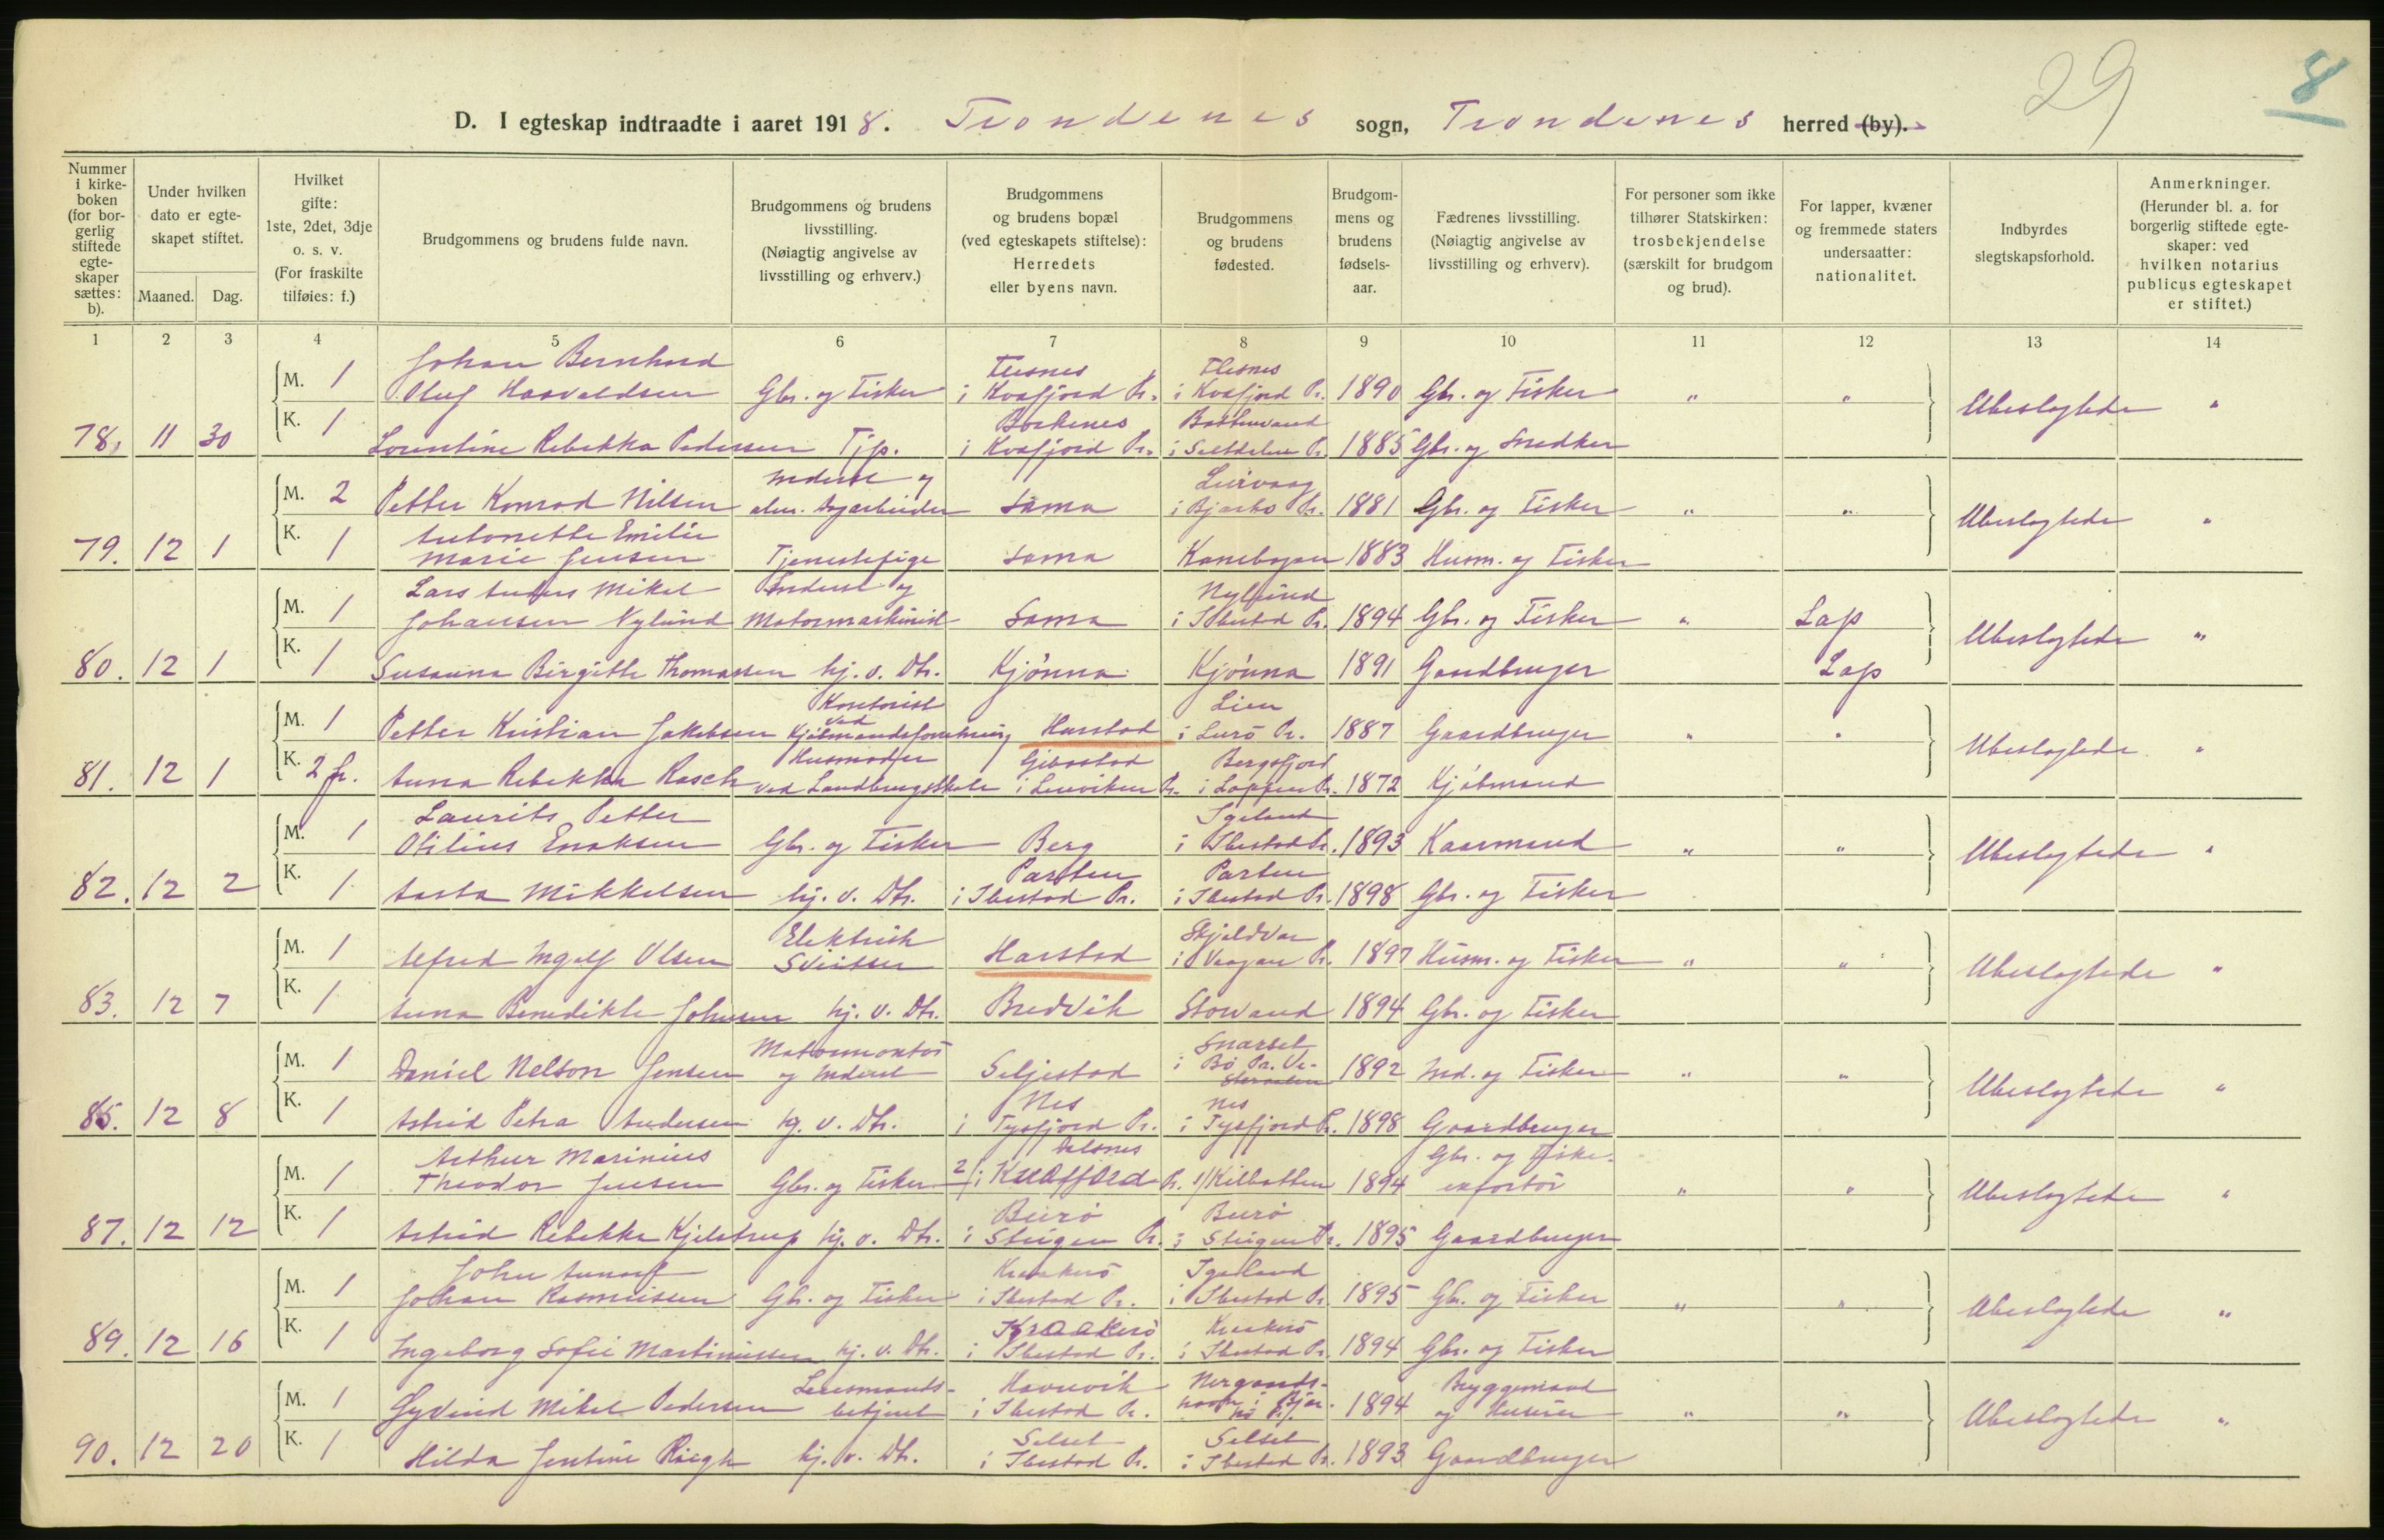 29
8
D. I egteskap indtraadte i aaret 1918. Trondenes sogn, Trondenes herred (by).
Nummer i kirkeboken (for borgerlig stiftede egteskaper sættes: b).
Under hvilken dato er egteskapet stiftet.
Maaned. Dag.
Hvilket gifte: 1ste, 2det, 3dje o. s. v. (For fraskilte tilføies: f.)
Brudgommens og brudens fulde navn.
Brudgommens og brudens livsstilling. (Nøiagtig angivelse av livsstilling og erhverv.)
Brudgommens og brudens bopæl (ved egteskapets stiftelse): Herredets eller byens navn.
Brudgommens og brudens fødested.
Brudgommens og brudens fødselsaar.
Fædrenes livsstilling. (Nøiagtig angivelse av livsstilling og erhverv).
For personer som ikke tilhører Statskirken: trosbekjendelse (særskilt for brudgom og brud).
For lapper, kvæner og fremmede staters undersaatter: nationalitet.
Indbyrdes slegtskapsforhold.
Anmerkninger. (Herunder bl. a. for borgerlig stiftede egteskaper: ved hvilken notarius publicus egteskapet er stiftet.)
1 2 3 4 5 6 7 8 9 10 11 12 13 14
M. 1 Johan Bernhard Oluf Haavaldsen Gbr. og Fisker Flesnes i Kvæfjord Pr. Flesnes i Kvæfjord Pr. 1890 Gbr. og Fisker " " Ubeslegtede "
78. 11 30 K. 1 Lorentine Rebekka Pedersen Tjp. Borkenes i Kvæfjord Pr. i Saltdalen Pr. 1885 Gbr. og Snedker
M. 2 Petter Konrad Nilsen Inderst og alm. dagarbeider Sama Leirvaag i Bjarkø Pr. 1881 Gbr. og Fisker " " Ubeslegtede "
79. 12 1 K. 1 Antonette Emilie Marie Jensen Tjenestepige Sama Kanebogen 1883 Husm. og Fisker
M. 1 Lars Anders Mikal Johansen Nylund Inderst og Motormaskinist Sama Nylund i Ibestad Pr. 1894 Gbr. og Fisker " Lap Ubeslegtede "
80. 12 1 K. 1 Susanna Birgitte Thomassen hj. v. Dtr. Kjönna Kjönna 1891 Gaardbruger Lap
M. 1 Petter Kristian Jakobsen Kontorist ved Kjöbmandsforretning Harstad Lien i Lurö Pr. 1887 Gaardbruger " " Ubeslegtede "
81. 12 1 K. 2 fr. Anna Rebekka Rasch Husmoder ved Landbrugsskole Gibostad i Lenviken Pr. Bergsfjord i Loppen Pr. 1872 Kjöbmand
M. 1 Laurits Petter Otilius Enoksen Gbr. og Fisker Berg Igeland i Ibestad Pr. 1893 Kaarmand " " Ubeslegtede "
82. 12 2 K. 1 Aasta Mikkelsen hj. v. Dtr. i Ibestad Pr. i Ibestad Pr. 1898 Gbr. og Fisker
M. 1 Alfred Ingolf Olsen Elektrisk Sveisser Harstad Skjeldvær i Vaagan Pr. 1897 Husm. og Fisker " " Ubeslegtede "
83. 12 7 K. 1 Anna Benedikte Johnsen hj. v. Dtr. Bredvik Storvand 1894 Gbr. og Fisker
M. 1 Daniel Nelson Jensen Motormontör og Inderst Seljestad i Bö Pr. Ve- 1892 Ind. og Fisker " " Ubeslegtede "
85. 12 8 K. 1 Astrid Petra Andersen hj. v. Dtr. Nes i Tysfjord Pr. Nes i Tysfjord Pr. 1898 Gaardbruger
M. 1 Arthur Marinius Theodor Jensen Gbr. og Fisker 2/ Dalsnes i Kvæfjord Pr. 1/ Kilbotten 1894 Gbr. og Fiskeexportör " " Ubeslegtede "
87. 12 12 K. 1 Astrid Rebekka Kjelstrup hj. v. Dtr. i Steigen Pr. i Steigen Pr. 1895 Gaardbruger
M. 1 John Johan Rasmussen Gbr. og Fisker Kraakerö i Ibestad Pr. Igeland i Ibestad Pr. 1895 Gbr. og Fisker " " Ubeslegtede "
89. 12 16 K. 1 Ingeborg Sofie Martinussen hj. v. Dtr. Kraakerö i Ibestad Pr. Kraakerö i Ibestad Pr. 1894 Gbr. og Fisker
M. 1 Eyvind Mikal Pedersen Lensmandsbetjent Havnvik i Ibestad Pr. Nergaardshavn i Bjarkö Pr. 1894 Bryggemand og Huseier " " Ubeslegtede "
90. 12 20 K. 1 Hilda Jentine hj. v. Dtr. Selset i Ibestad Pr. Selset i Ibestad Pr. 1893 Gaardbruger